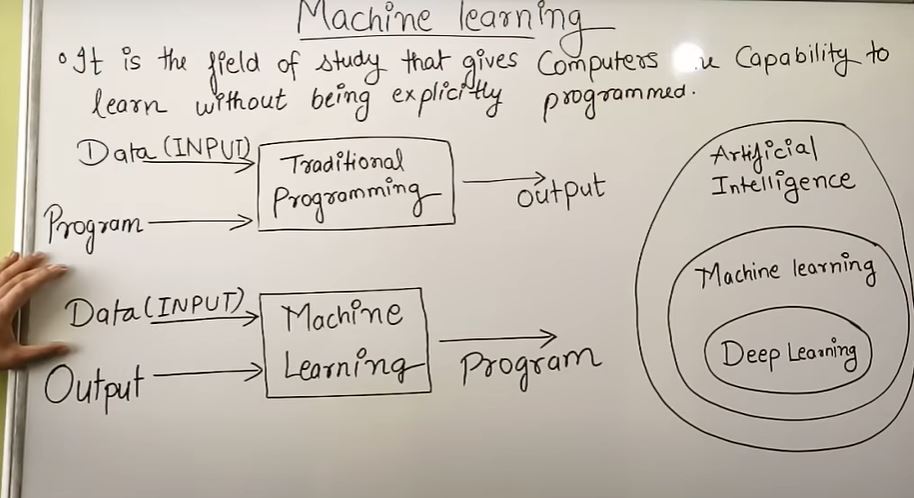 Machine learning
• It is the field of study that gives Computers Capability to
learn without being explicitly programmed.
Data (INPUT)
Traditional
Programming
Program
Output
Data (INPUT)
Machine
Learning
Output
Program
Artificial
Intelligence
Machine learning
Deep Learning